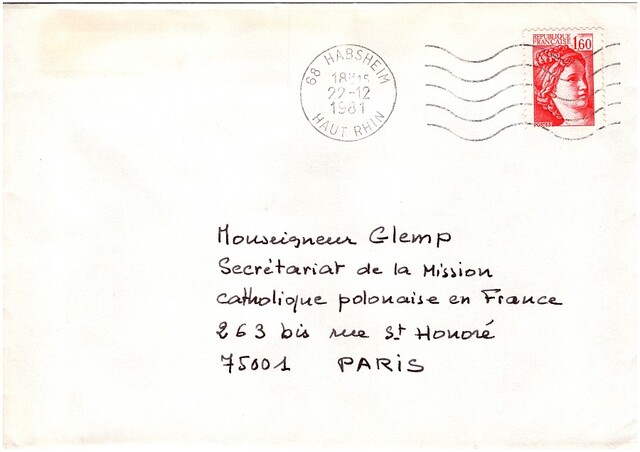 68 HABSHEIM
18H15
22-12
1981
HAUT RHIN
REPUBLIQUE
FRANÇAISE 1,60
POSTES
Monseigneur Glemp
Secrétariat de la Mission
catholique polonaise en France
263 bis rue St Honoré
75001 PARIS